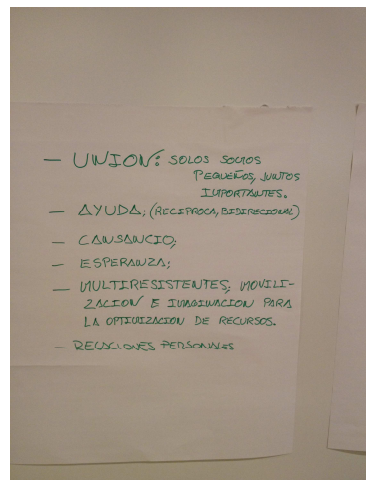 — UNION: SOLOS SOMOS
PEQUEÑOS, JUNTOS
IMPORTANTES.
— AYUDA; (RECIPROCA, BIDIRECIONAL)
— CANSANCIO;
— ESPERANZA;
— MULTIRESISTENTES; MOVILI-
ZACION E IMAGINACION PARA
LA OPTIMIZACION DE RECURSOS.
— RELACIONES PERSONALES